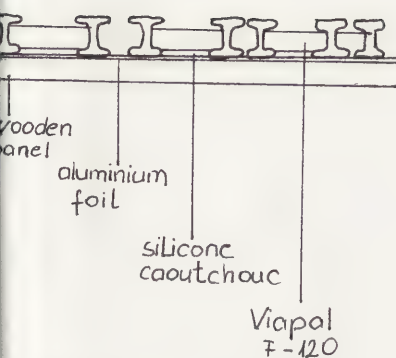 wooden
panel
aluminium
foil
silicone
caoutchouc
Viapal
7-120